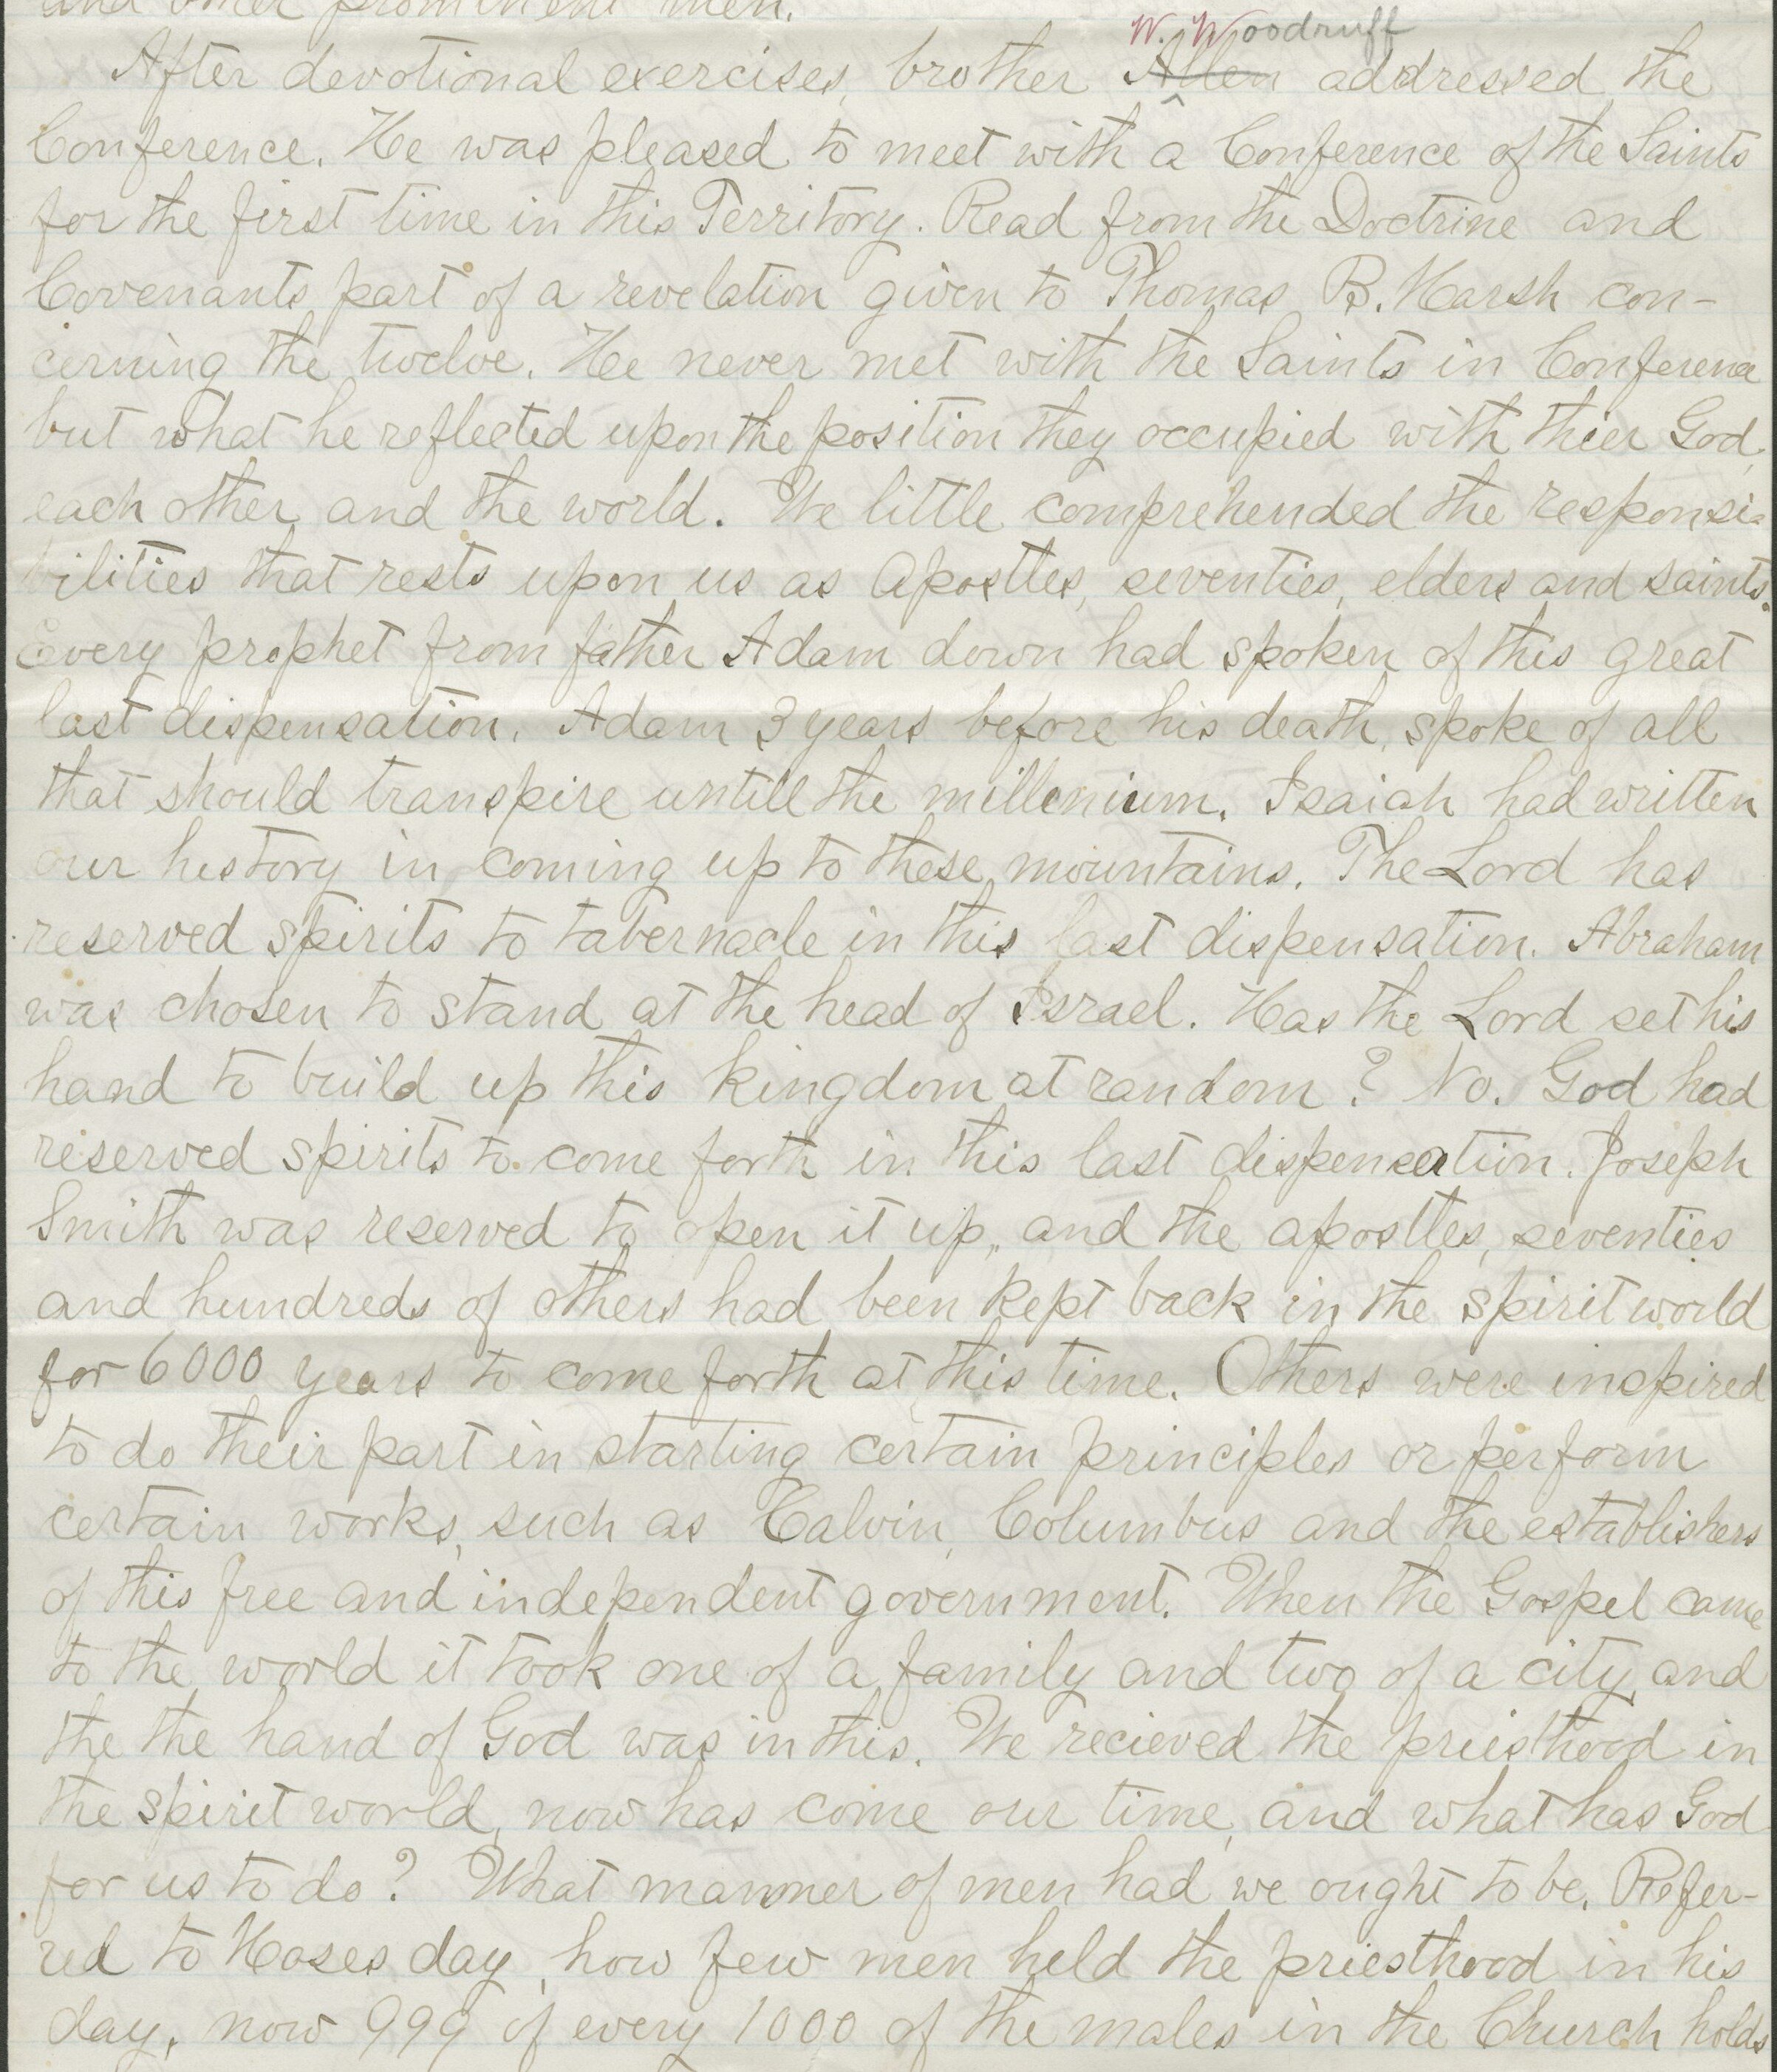 and other prominent men.
W. Woodruff
After devotional exercises, brother Allen addressed the
Conference. He was pleased to meet with a Conference of the Saints
for the first time in this Territory. Read from the Doctrine and
Covenants part of a revelation given to Thomas B. Marsh con-
cerning the twelve. He never met with the Saints in Conference
but what he reflected upon the position they occupied with thier God,
each other and the world. We little comprehended the responsi-
bilities that rests upon us as Apostles, seventies, elders and saints.
Every prophet from father Adam down had spoken of this great
last dispensation. Adam 3 years before his death, spoke of all
that should transpire untill the millenium. Isaiah had written
our history in coming up to these mountains. The Lord has
reserved spirits to tabernacle in this last dispensation. Abraham
was chosen to stand at the head of Israel. Has the Lord set his
hand to build up this kingdom at random? No. God had
reserved spirits to come forth in this last dispensation. Joseph
Smith was reserved to open it up, and the apostles, seventies
and hundreds of others had been kept back in the spirit world
for 6000 years to come forth at this time. Others were inspired
to do their part in starting certain principles or perform
certain works, such as Calvin, Columbus and the establishers
of this free and independent government. When the Gospel came
to the world it took one of a family and two of a city, and
the the hand of God was in this. We recieved the priesthood in
the spirit world, now has come our time, and what has God
for us to do? What manner of men had we ought to be. Refer-
red to Moses day, how few men held the priesthood in his
day, now 999 of every 1000 of the males in the Church holds